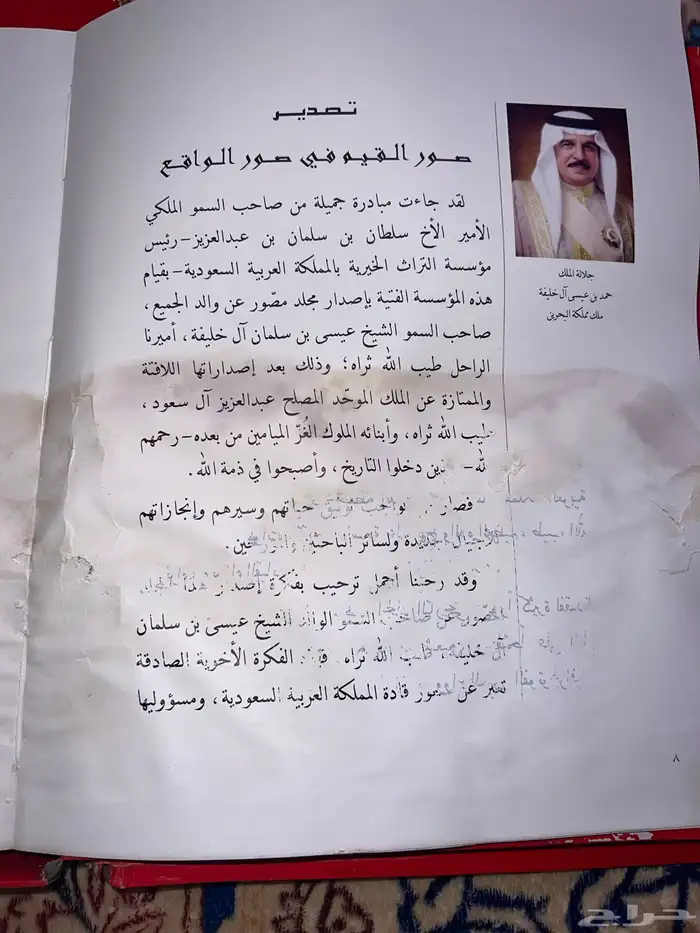 تصدير
صور القيم في صور الواقع
لقد جاءت مبادرة جميلة من صاحب السمو الملكي
الأمير الأخ سلطان بن سلمان بن عبدالعزيز-رئيس
مؤسسة التراث الخيرية بالمملكة العربية السعودية-بقيام
هذه المؤسسة الفتية بإصدار مجلد مصّور عن والد الجميع،
صاحب السمو الشيخ عيسى بن سلمان آل خليفة، أميرنا
الراحل طيب الله ثراه؛ وذلك بعد إصداراتها اللافتة
والممتازة عن الملك الموحّد المصلح عبدالعزيز آل سعود،
طيب الله ثراه، وأبنائه الملوك الغُزّ الميامين من بعده-رحمهم
الله- دخلوا التاريخ، وأصبحوا في ذمة الله.
فصار توثيق حياتهم وسيرهم وإنجازاتهم
ولسائر
وقد رحبنا أجمل ترحيب بفكرة إصدار هذا
عن السمو الوالد الشيخ عيسى بن سلمان
آل خليفة، طيب الله ثراه، الفكرة الأخوية الصادقة
تعبر عن شعور قادة المملكة العربية السعودية، ومسؤوليها
جلالة الملك
حمد بن عيسى آل خليفة
ملك مملكة البحرين
٨
حراج